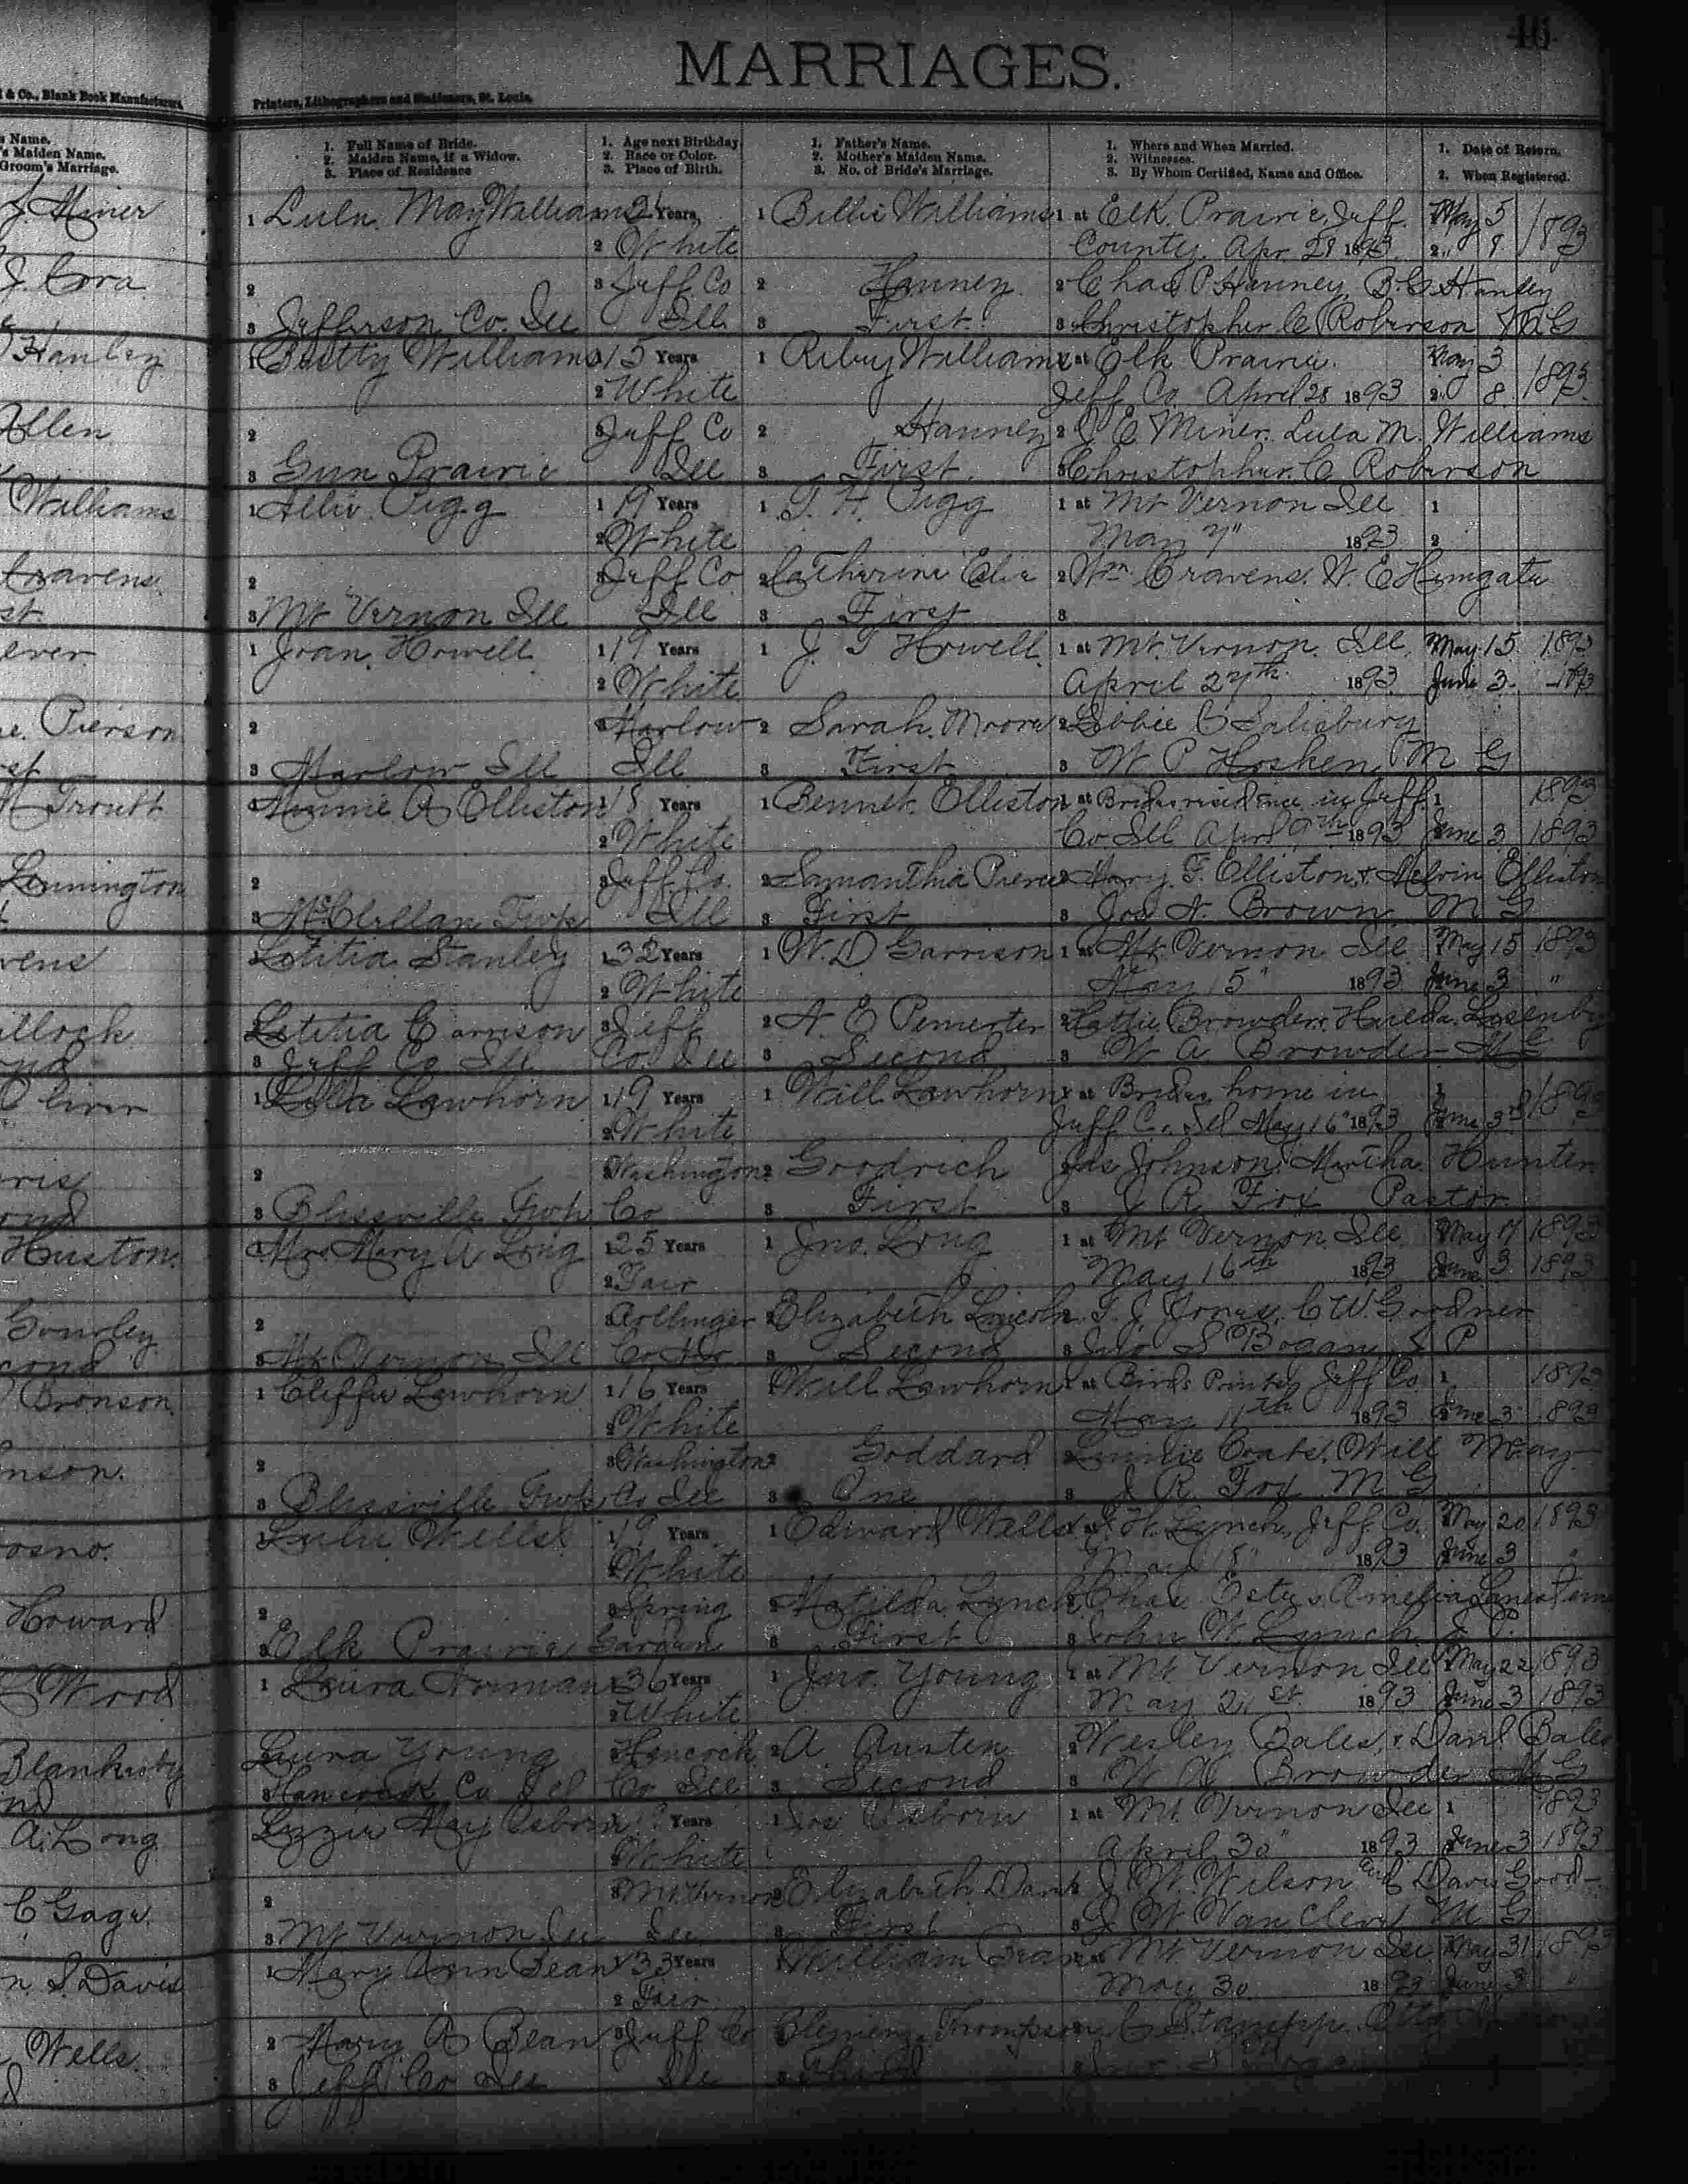 MARRIAGES.
& Co., Blank Book Manufacturers,
Printers, Lithographers and Stationers, St. Louis.
s Name.
's Maiden Name.
Groom's Marriage.
1. Full Name of Bride.
2. Maiden Name, if a Widow.
3. Place of Residence
1. Age next Birthday.
2. Race or Color.
3. Place of Birth.
1. Father's Name.
2. Mother's Maiden Name.
3. No. of Bride's Marriage.
1. Where and When Married.
2. Witnesses.
3. By Whom Certified, Name and Office.
1. Date of Return.
2. When Registered.
J. Miner
1 Lulu May Williams 21 Years, 1 Billie Williams 1 at Elk Prairie, Jeff. May 5
2 White County. Apr. 28 1893. 2 " 8 1893
J. Cora
2 3 Jeff Co 2 Hanney 2 Chas P Hanney, B. G. Hanley
3 Jefferson Co. Ill Ill 3 First 3 Christopher C Roberson
Hanley
1 Betty Williams 15 Years 1 Riley Williams 1 at Elk Prairie. May 3
2 White Jeff Co April 28 1893 2 " 8. 1893.
Allen
2 3 Jeff Co 2 Hanney 2 J. E. Miner. Lula M. Williams
3 Gun Prairie Ill 3 First. 3 Christopher. C Roberson
Williams
1 Allie Pigg 1 19 Years 1 T. H. Pigg 1 at Mt Vernon Ill 1
2 White May 7" 1893 2
Cravens.
2 3 Jeff Co 2 Catherine 2 Wm Cravens. W. E Hungate
st.
3 Mt Vernon Ill Ill 3 First 3
ever
1 Joan. Howell 1 19 Years 1 J. T Howell. 1 at Mt. Vernon. Ill. May 15 1893
2 White April 27th. 1893. June 3. 1893
Pierson
2 3 Marlow 2 Sarah. Moore 2 Libbie C Salisbury
st
3 Marlow Ill Ill 3 First 3 W. P. Hosken, M G
Troutt
1 Minnie A Elliston 1 18 Years 1 Bennet. Elliston 1 at Brides residence in Jeff 1 1893
2 White Co Ill April 9th 1893 June 3 1893
Lennington
2 3 Jeff. Co. 2 Samantha Pierce 2 Mary F. Elliston & Melvin Elliston
3 McClellan Twp Ill 3 First 3 Jos N. Brown M G
vens
1 Letitia Stanley 1 32 Years 1 W. D Garrison 1 at Mt. Vernon Ill May 15 1893
2 White May 15" 1893 June 3 "
llock
Letitia Garrison 3 Jeff 2 A E Pemerter 2 Hattie Browder
nd
3 Jeff Co Ill. Co. Ill 3 Second 3 W A Browder M G
Oliver
1 Lula Lawhorn 1 19 Years 1 Will. Lawhorn 1 at Brides home in 1
2 White Jeff C. Ill May 16" 1893 June 3rd
ris
2 3 Washington 2 Goodrich 2 Jas Johnson, Martha Hunter
ond
3 Blissville Twp Co 3 First 3 J R Fox Pastor.
Huston.
1 Mrs. Mary A Long 1 25 Years 1 Jno. Long 1 at Mt Vernon Ill May 17 1893
2 Fair May 16th 1893 June 3 1893
Gourley
2 2 Elizabeth Lincoln 2 T. J. Jones, C W. Goodner
cond
3 Mt Vernon Ill Co Mo 3 Second 3 Jno S Bogan, J P
Bronson.
1 Cliffie Lawhorn 1 16 Years 1 Will Lawhorn 1 at Birds Jeff Co. 1 1893
2 White May 11th 1893 June 3 1893
nson.
2 3 Washington 2 Goddard 2 Coats, Will May
3 Blissville Twp Co Ill 3 One 3 J R. Fox M G
osno.
1 Lulie Wells 1 19 Years. 1 Edward Wells 1 at T. H. Lynch, Jeff Co. May 20 1893
2 White May 18" 1893 June 3 "
Howard
2 3 Spring 2 Matilda Lynch 2 Chas. Estes Amelia
3 Elk Prairie Garden 3 First 3 John W. Lynch J. P.
Wood
1 Laura Norman 1 36 Years 1 Jno. Young 1 at Mt Vernon Ill May 22 1893
2 White May 21st. 1893 June 3 1893
Laura Young 3 Hancock 2 A Austen 2 Wesley Bales, & Danl. Bales
nd
3 Hancock Co Ill Co Ill 3 Second 3 W A Browder M G
A. Long
1 Lizzie May Osborn 1 19 Years 1 Jos Osborn 1 at Mt. Vernon Ill 1 1893
2 White April 30" 1893 June 3 1893
C Gage.
2 3 Mt. Vernon 2 Elizabeth Davis 2 J. W. Wilson and C Davis Good-
3 Mt Vernon Ill Ill 3 First 3 J. W. Van Cleve M G
n S. Davis
1 Mary Ann Bean 1 33 Years 1 William 1 at Mt Vernon Ill May 31 1893
2 Fair May 30. 1893 June 3 "
Wells.
2 Mary A Bean 3 Jeff Co Thompson 2 C Stamp
3 Jeff Co Ill Ill 3 Third 3